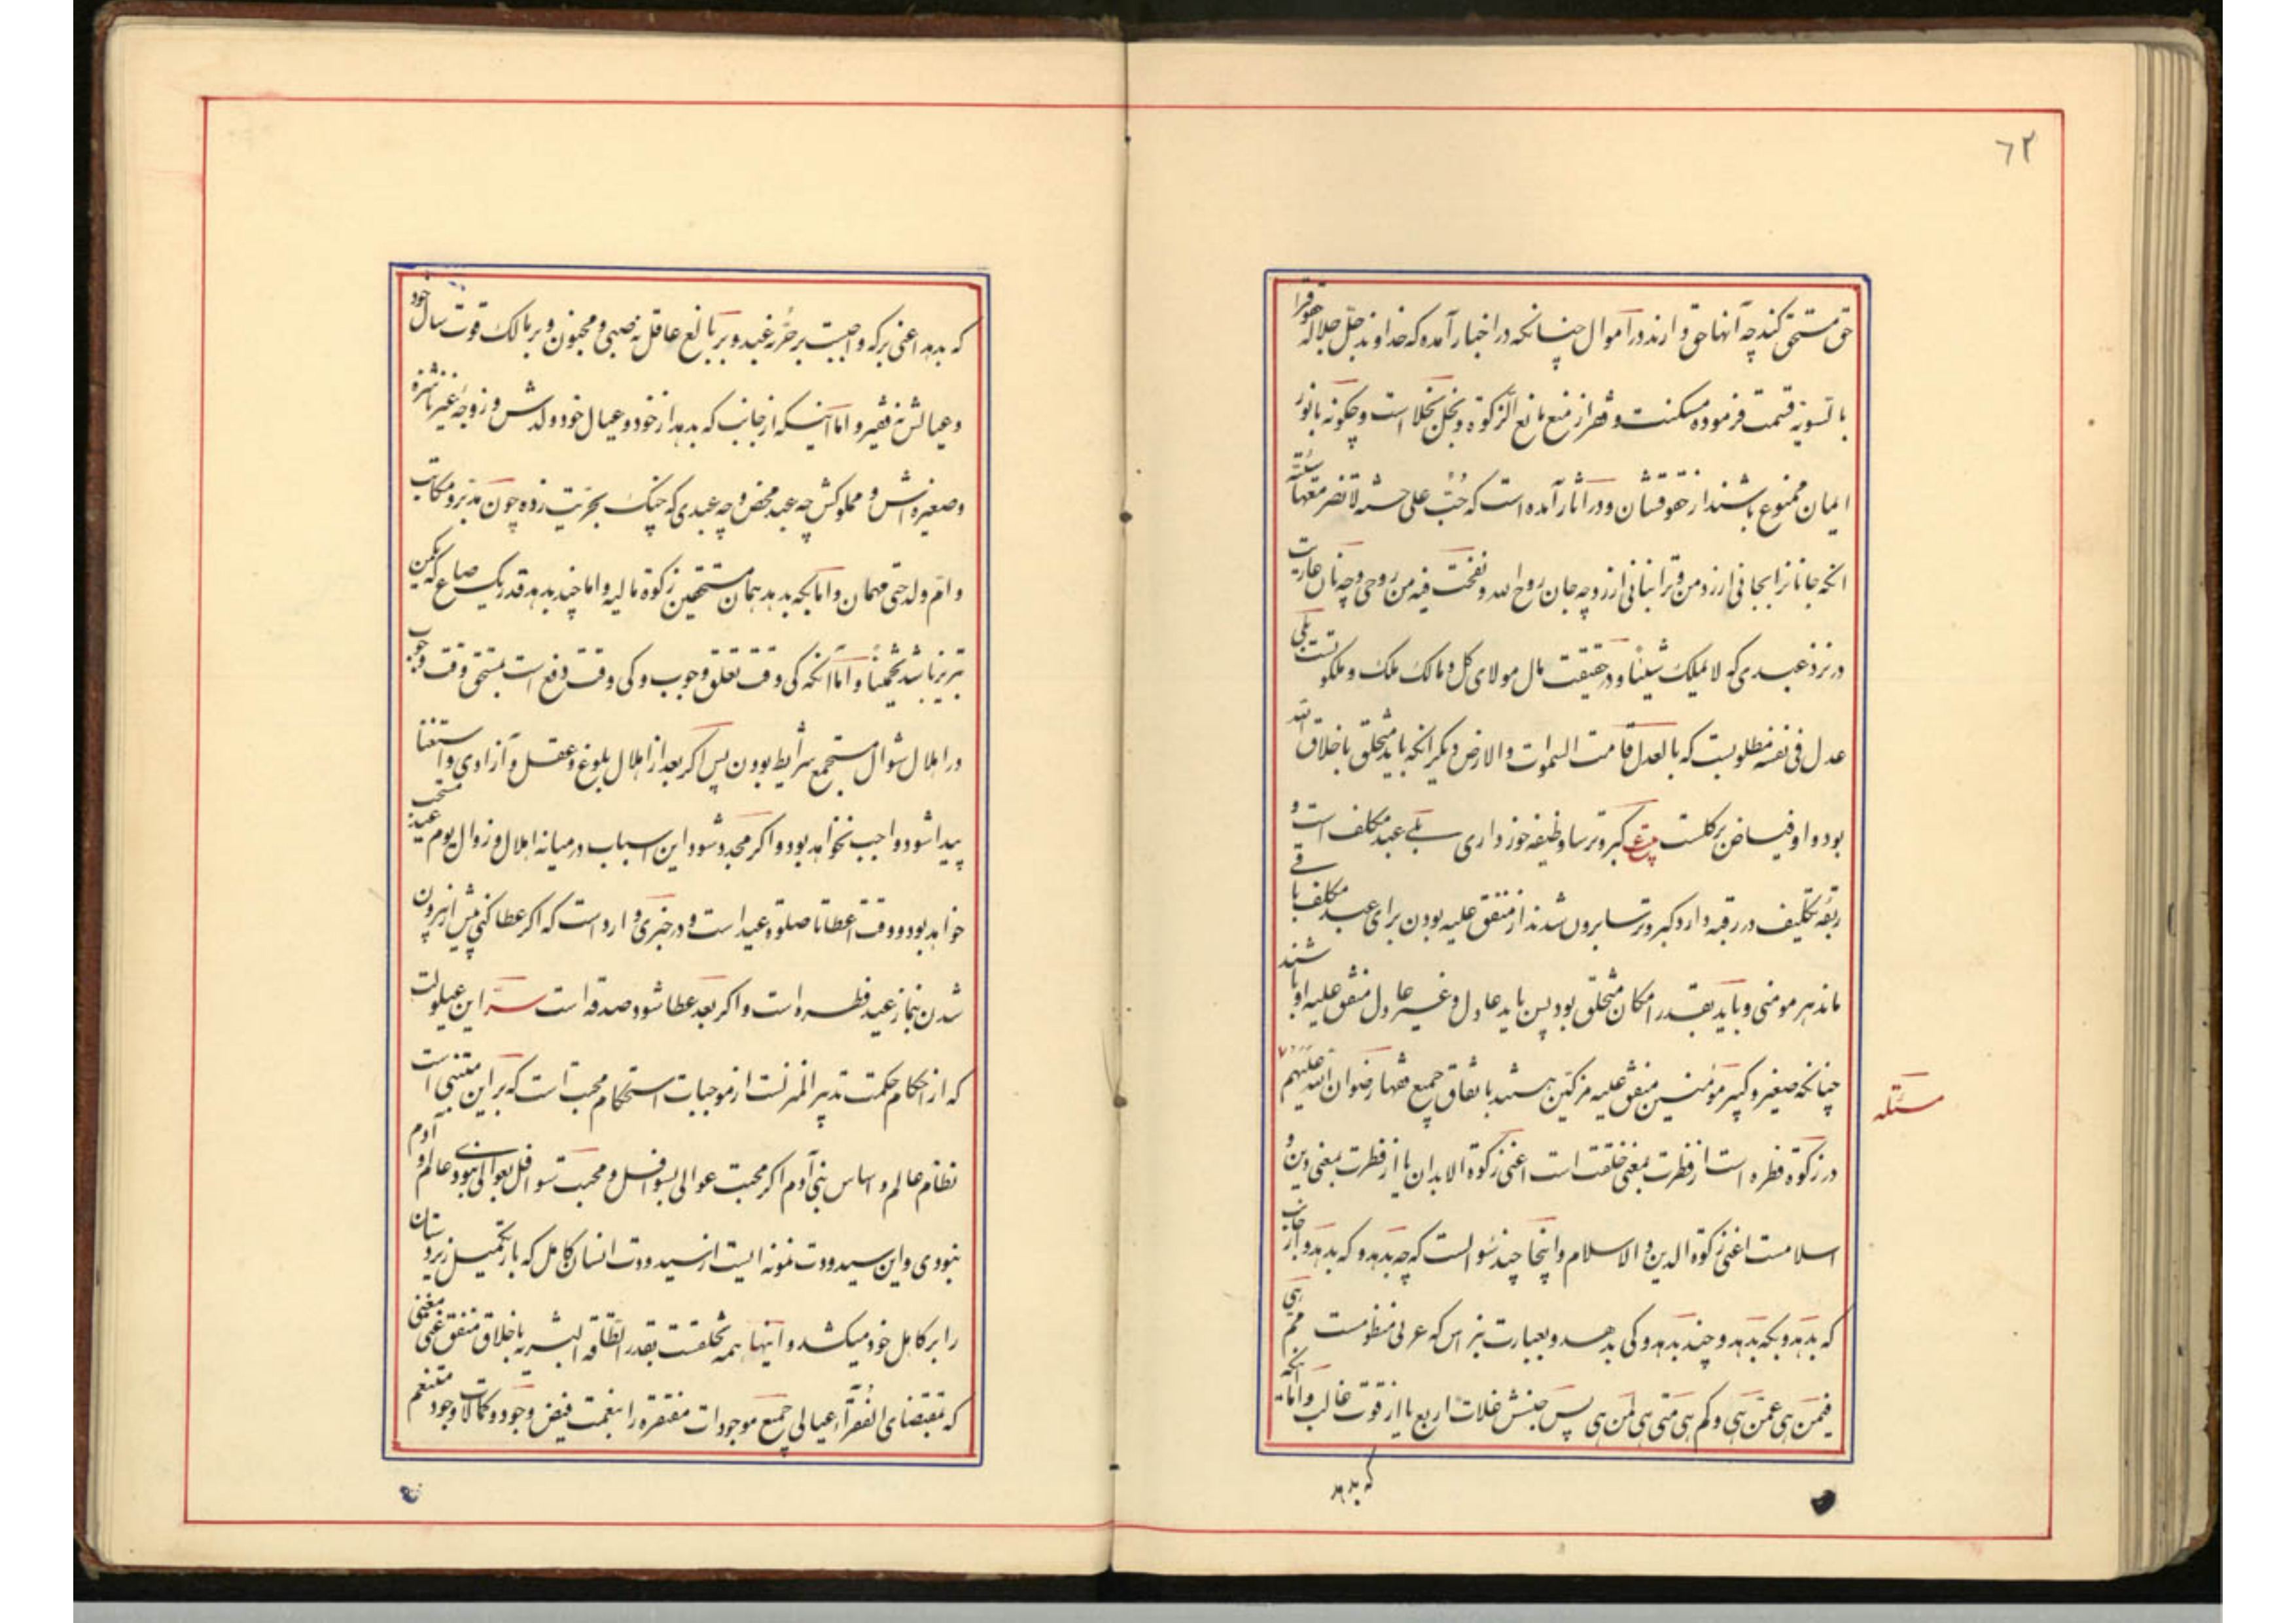 ٦٢
حق مستحق کند چه آنها حق دارند در اموال چنانکه در اخبار آمده که خداوند جل جلاله حقوقرا
بالتسویه قسمت فرموده مسکنت و فقر از منع مانع الزکوة و بخل بخلا است و چگونه بانور
ایمان ممنوع باشند از حقوقشان و در اثار آمده است که حب علی حسنة لا تضر معها سیئة
انکه جانانرا بجانی ارزد من و ترا بنانی ارزد چه جان روح الله و نفخت فیه من روحی و چه نان عاریت
در نزد عبدی که لا یملک شیئا و در حقیقت مال مولای کل و مالک ملک و ملکوتست بلی
عدل فی نفسه مطلوبست که بالعدل قامت السموات و الارض دیگر انکه باید متخلق باخلاق الله
بود و او فیاض بر کلست ع گبر و ترسا وظیفه خور داری بلی عبد مکلف است و
ربقه تکلیف در رقبه دارد گبر و ترسا برون شدند از متفق علیه بودن برای عبد مکلف باقی
ماند هر مومنی و باید بقدر امکان متخلق بود پس باید عادل و غیر عادل متفق علیه او باشند
چنانکه صغیر و کبیر مؤمنین متفق علیه مزکین هستند باتفاق جمیع فقها رضوان الله علیهم
مسئله
در زکوة فطره است از فطرت بمعنی خلقت است اعنی زکوة الابدان یا از فطرت بمعنی دین و
اسلامست اعنی زکوة الدین و الاسلام و اینجا چند سؤالست که چه بدهد و که بدهد و از جانب
که بدهد و بکه بدهد و چند بدهد و کی بدهد و بعبارت نبراس که عربی منظومست مم هی
فممن هی عمن هی و کم هی متی هی لمن هی پس جنسش غلات اربع یا از قوت غالب و اما انکه
که بدهد
که بدهد اعنی بر که واجبست بر حر نه عبد و بر بالغ عاقل نه صبی و مجنون و بر مالک قوت سال خود
و عیالش نه فقیر و اما اینکه از جانب که بدهد از خود و عیال خود ولدش و زوجه غیر ناشزه
و صغیره اش و مملوکش چه عبد محض و چه عبدی که چنگ بحریت زده چون مدبر و مکاتب
و ام ولد حتی مهمان و اما بکه بدهد همان مستحقین زکوة مالیه و اما چند بدهد قدر یک صاع که یکمن
تبریز باشد تخمینا و اما انکه کی وقت تعلق وجوب و کی وقت دفع است بمستحق وقت وجوب
در اهلال شوال مستجمع شرایط بودن پس اگر بعد از اهلال بلوغ و عقل و آزادی و استغنا
پیدا شود واجب نخواهد بود و اگر مجدد شود این اسباب در میانه اهلال و زوال یوم عید مستحب
خواهد بود و وقت اعطا تا صلوة عید است و در خبری وارد است که اگر عطا کنی پیش از بیرون
شدن بنماز عید فطره است و اگر بعد عطا شود صدقه است سر این عیلولت
که از احکام حکمت تدبیر المنزلست از موجبات استحکام محبت است که بر این مبتنی است
نظام عالم و اساس بنی آدم اگر محبت عوالی بسوافل و محبت سوافل بعوالی نبودی عالم و آدم
نبودی و این سید ودت نمونه ایست از سید ودت انسان کامل که بار تکمیل زیردستان
را بر کاهل خود میکشد و اینها همه تخلقست بقدر الطاقة البشریه باخلاق متفق غنی مغنی
که بمقتضای الفقراء عیالی جمیع موجودات مفتقره را بنعمت فیض وجود و کمالات وجود متنعم